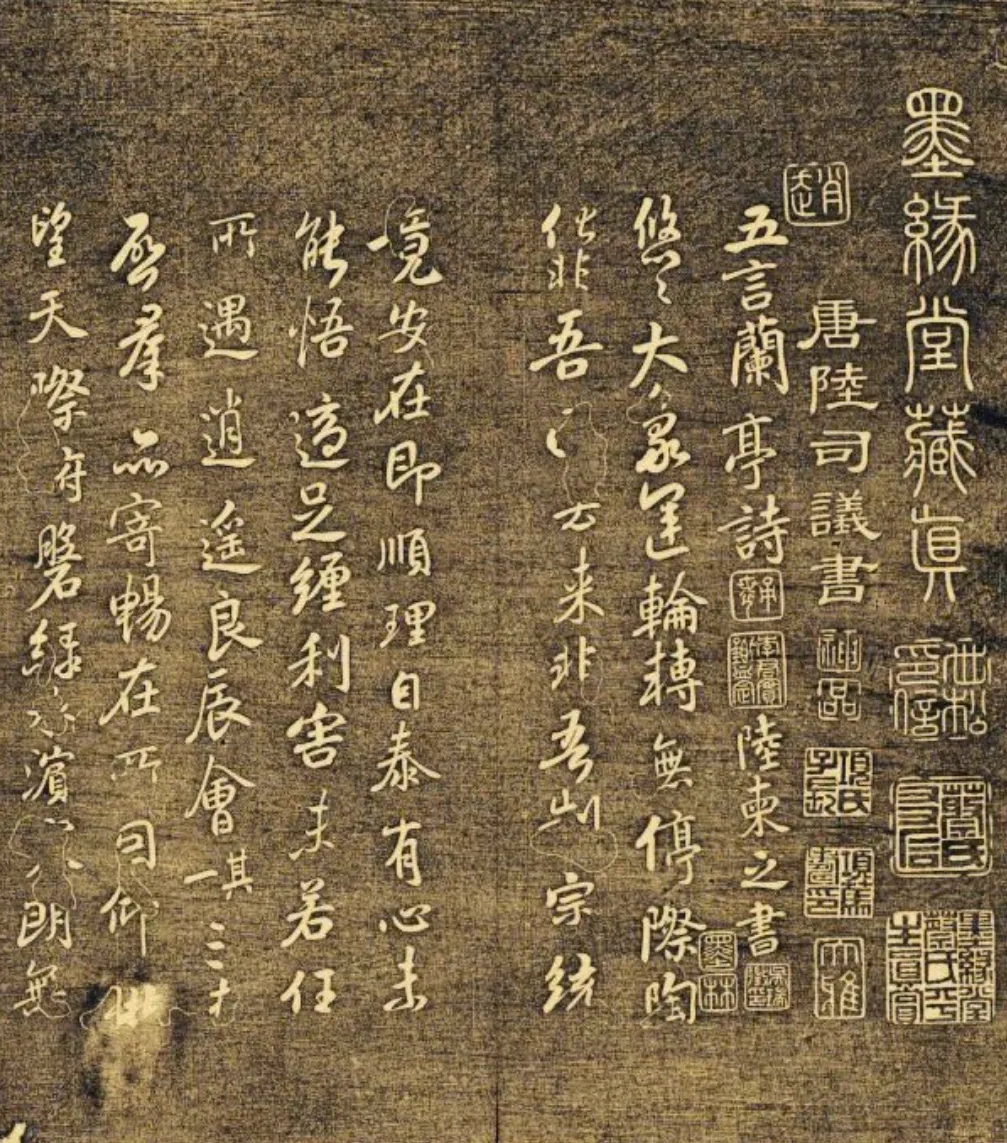 墨緣堂藏真
唐陸司議書
五言蘭亭詩
陸柬之書
悠〻大象運輪轉無停際陶
化非吾因去来非吾制宗統
竟安在即順理自泰有心未
能悟適足纏利害未若任
所遇逍遥良辰會其一三才
群亦寄暢在所因仰
望天際俯磐緑水濱朗無
神品
項氏子長
墨林
大雅